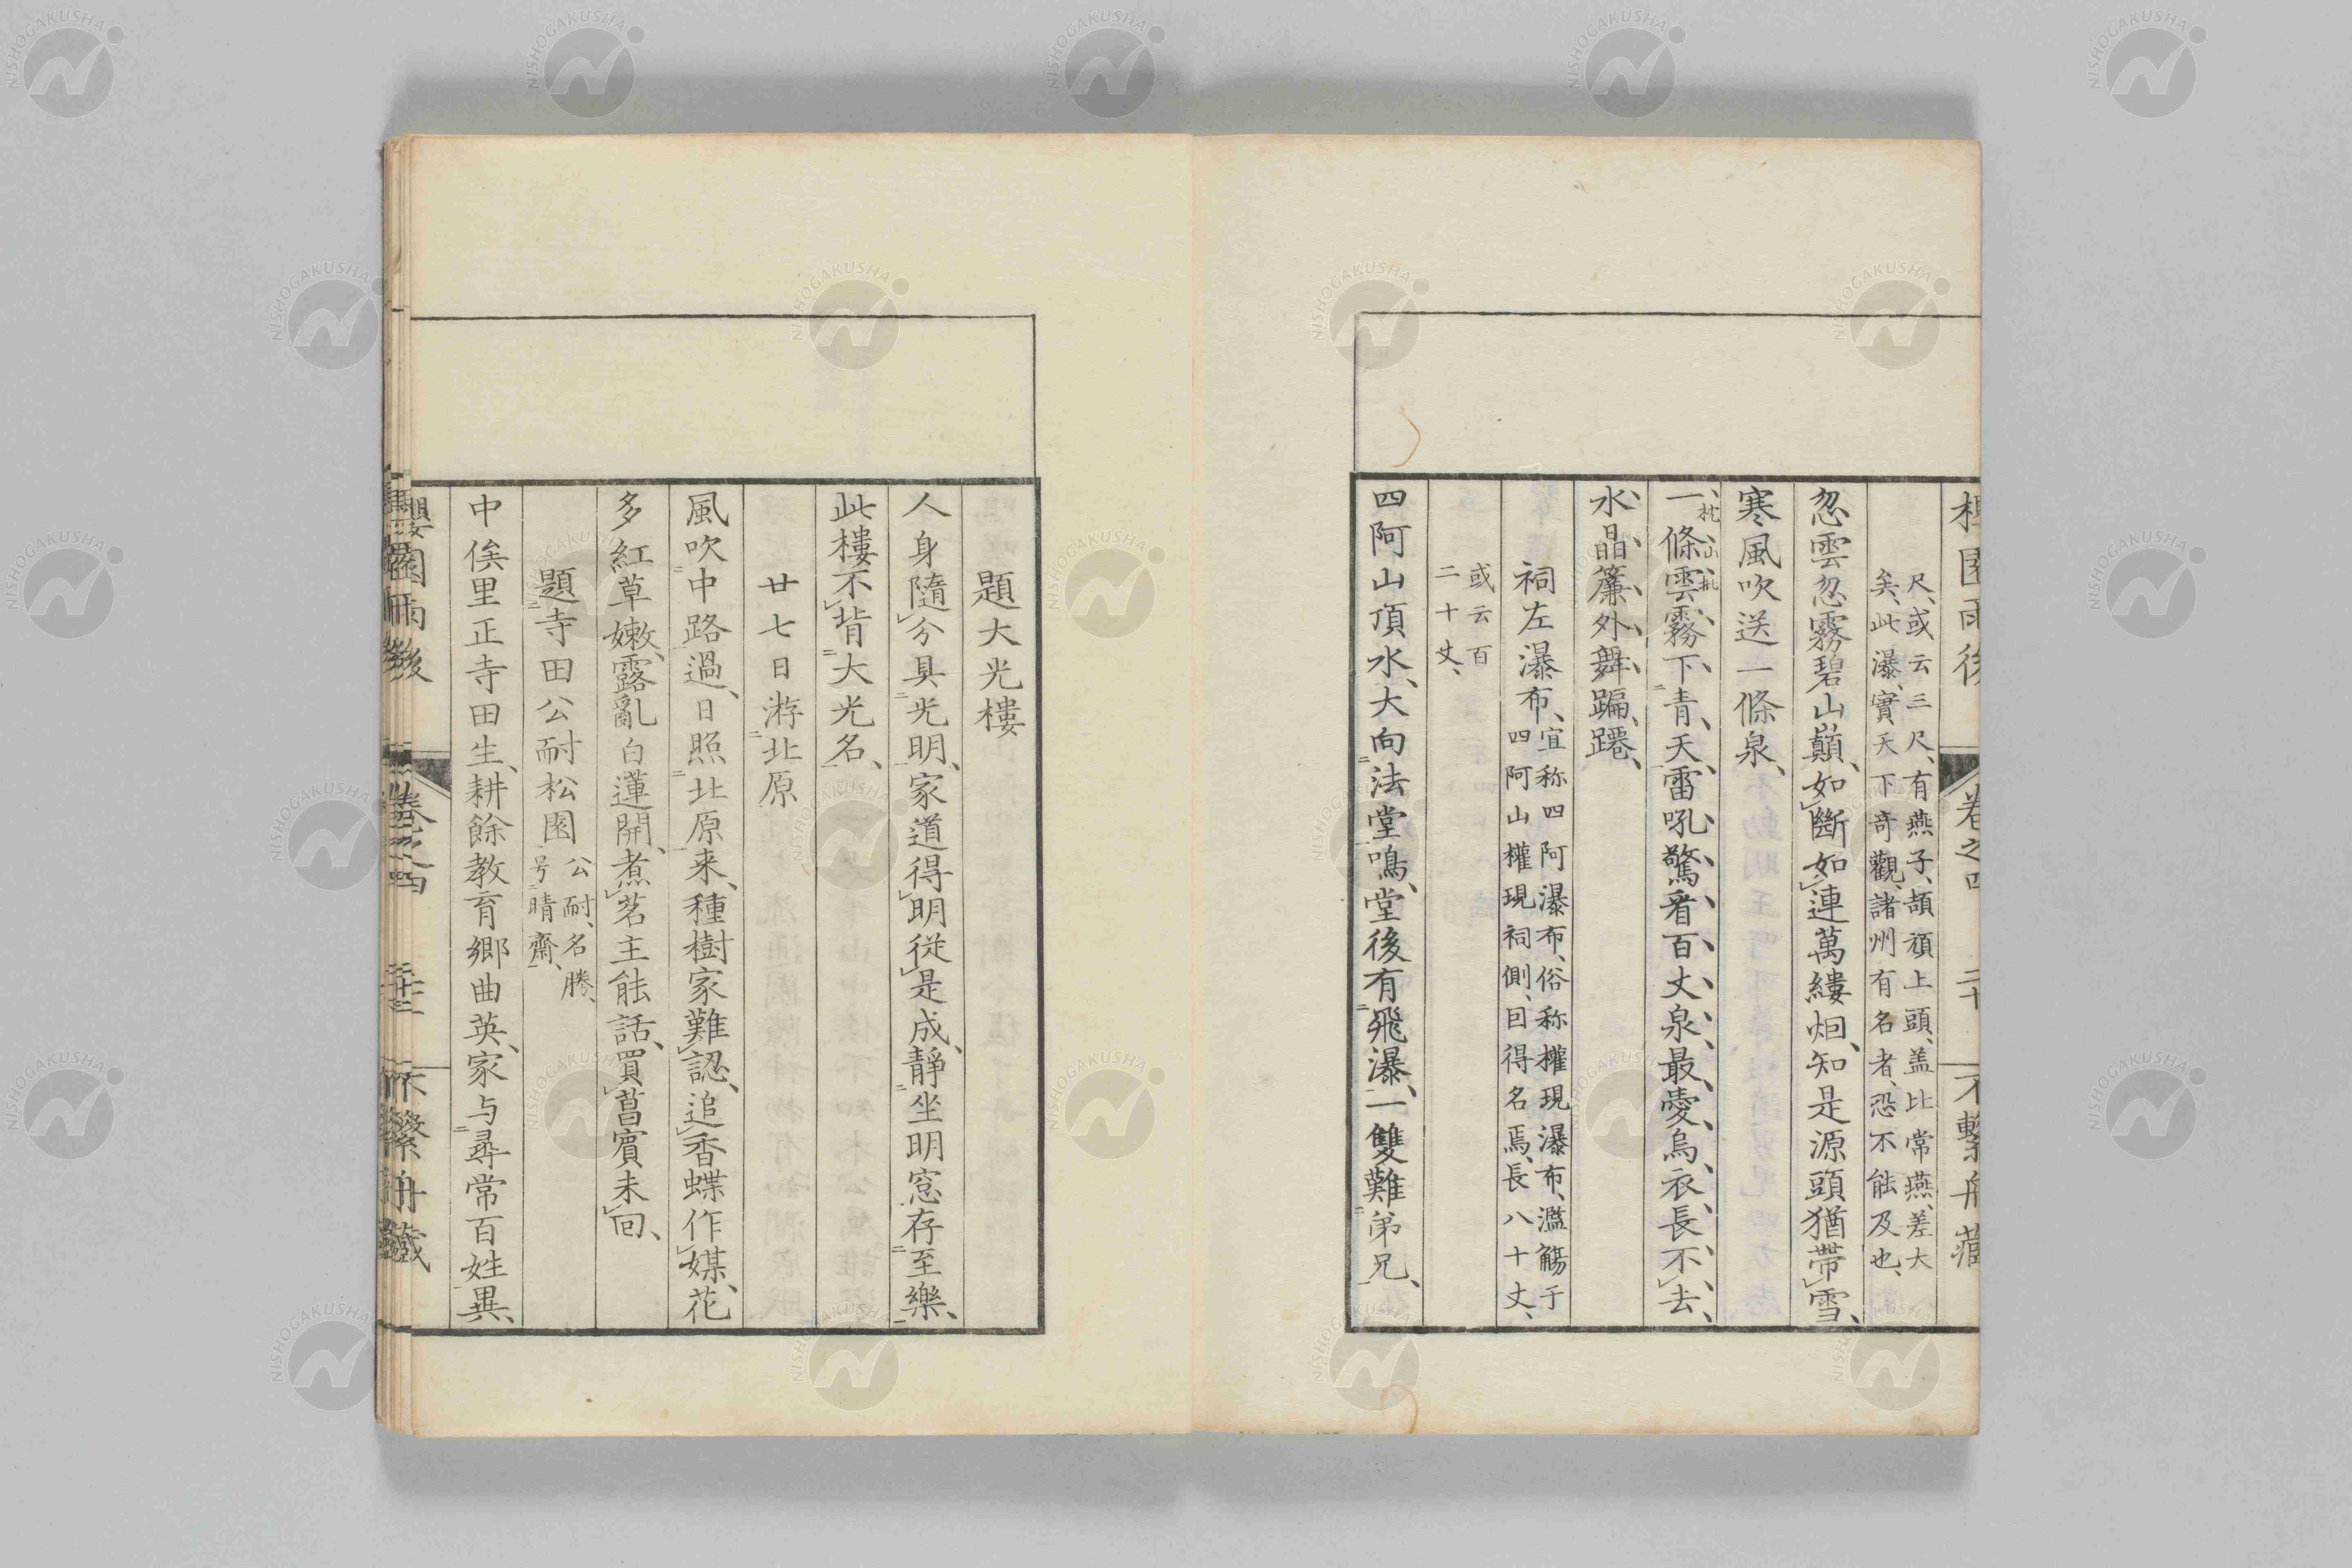 園雨後 卷之四 二十 不繫舟藏
尺、或云三尺、有燕子、頡頏上頭、盖比常燕、差大
矣、此瀑、實天下奇觀、諸州有名者、恐不能及也、
忽雲忽霧碧山巔、如斷如連萬縷烟、知是源頭猶帶雪、
寒風吹送一條泉、
一條雲霧下青天、雷吼驚看百丈泉、最愛烏衣長不去、
枕山批
水晶簾外舞蹁躚、
祠左瀑布、
宜称四阿瀑布、俗称權現瀑布、濫觴于
四阿山權現祠側、因得名焉、長八十丈、
或云百
二十丈、
四阿山頂水、大向法堂鳴、堂後有飛瀑、一雙難弟兄、
題大光樓
人身隨分具光明、家道得明從是成、靜坐明窓存至樂、
此樓不背大光名、
廿七日游北原
風吹中路過、日照北原来、種樹家難認、追香蝶作媒、花
多紅草嫩、露亂白蓮開、煮茗主能話、買菖賓未回、
題寺田公耐松園
公耐、名勝、
号晴齋、
中俟里正寺田生、耕餘教育鄉曲英、家与尋常百姓異、
櫻園雨後 卷之四 不繫舟藏